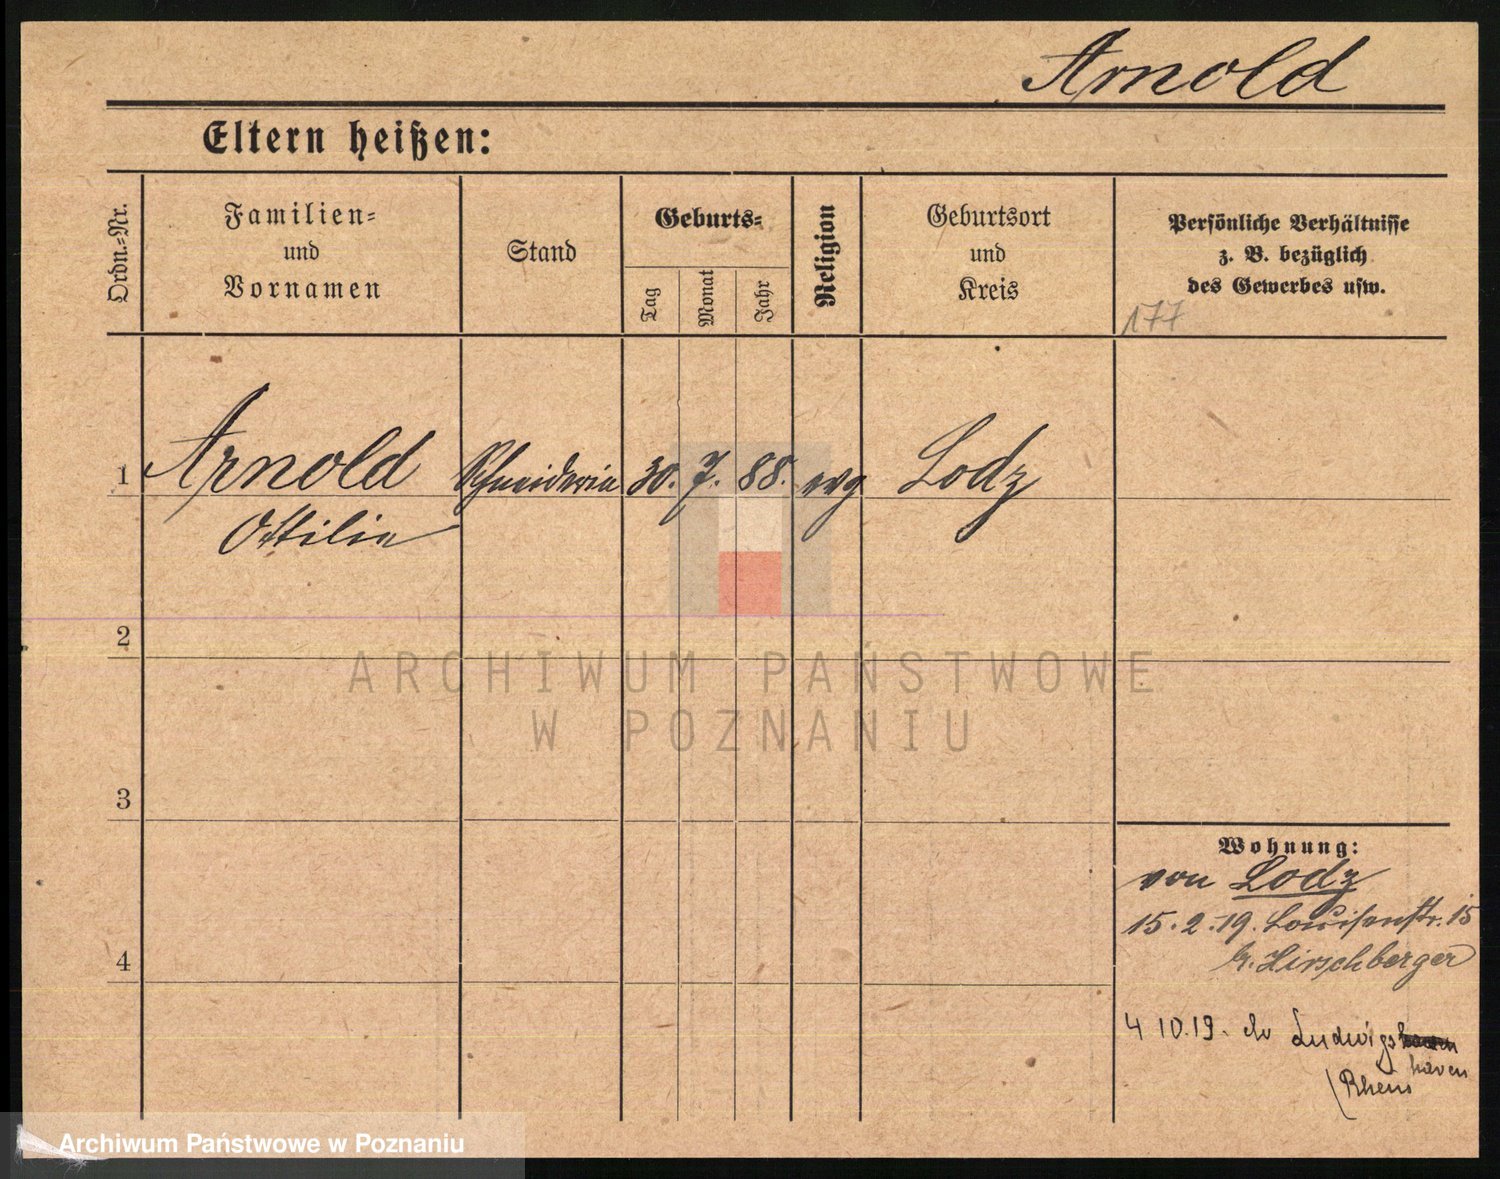 Arnold
Eltern heißen:
Ordn.=Nr.
Familien=
und
Vornamen
Stand
Geburts=
Tag
Monat
Jahr
Religion
Geburtsort
und
Kreis
Persönliche Verhältnisse
z. B. bezüglich
des Gewerbes usw.
177
1 Arnold Schneiderin 30. 7. 88. evg Lodz
Ottilie
2
ARCHIWUM PAŃSTWOWE
W POZNANIU
3
Wohnung:
von Lodz
15.2.19. Louisenstr. 15
b. Hirschberger
4
4 10.19. Ludwigs
haven
(Rhein
Archiwum Państwowe w Poznaniu